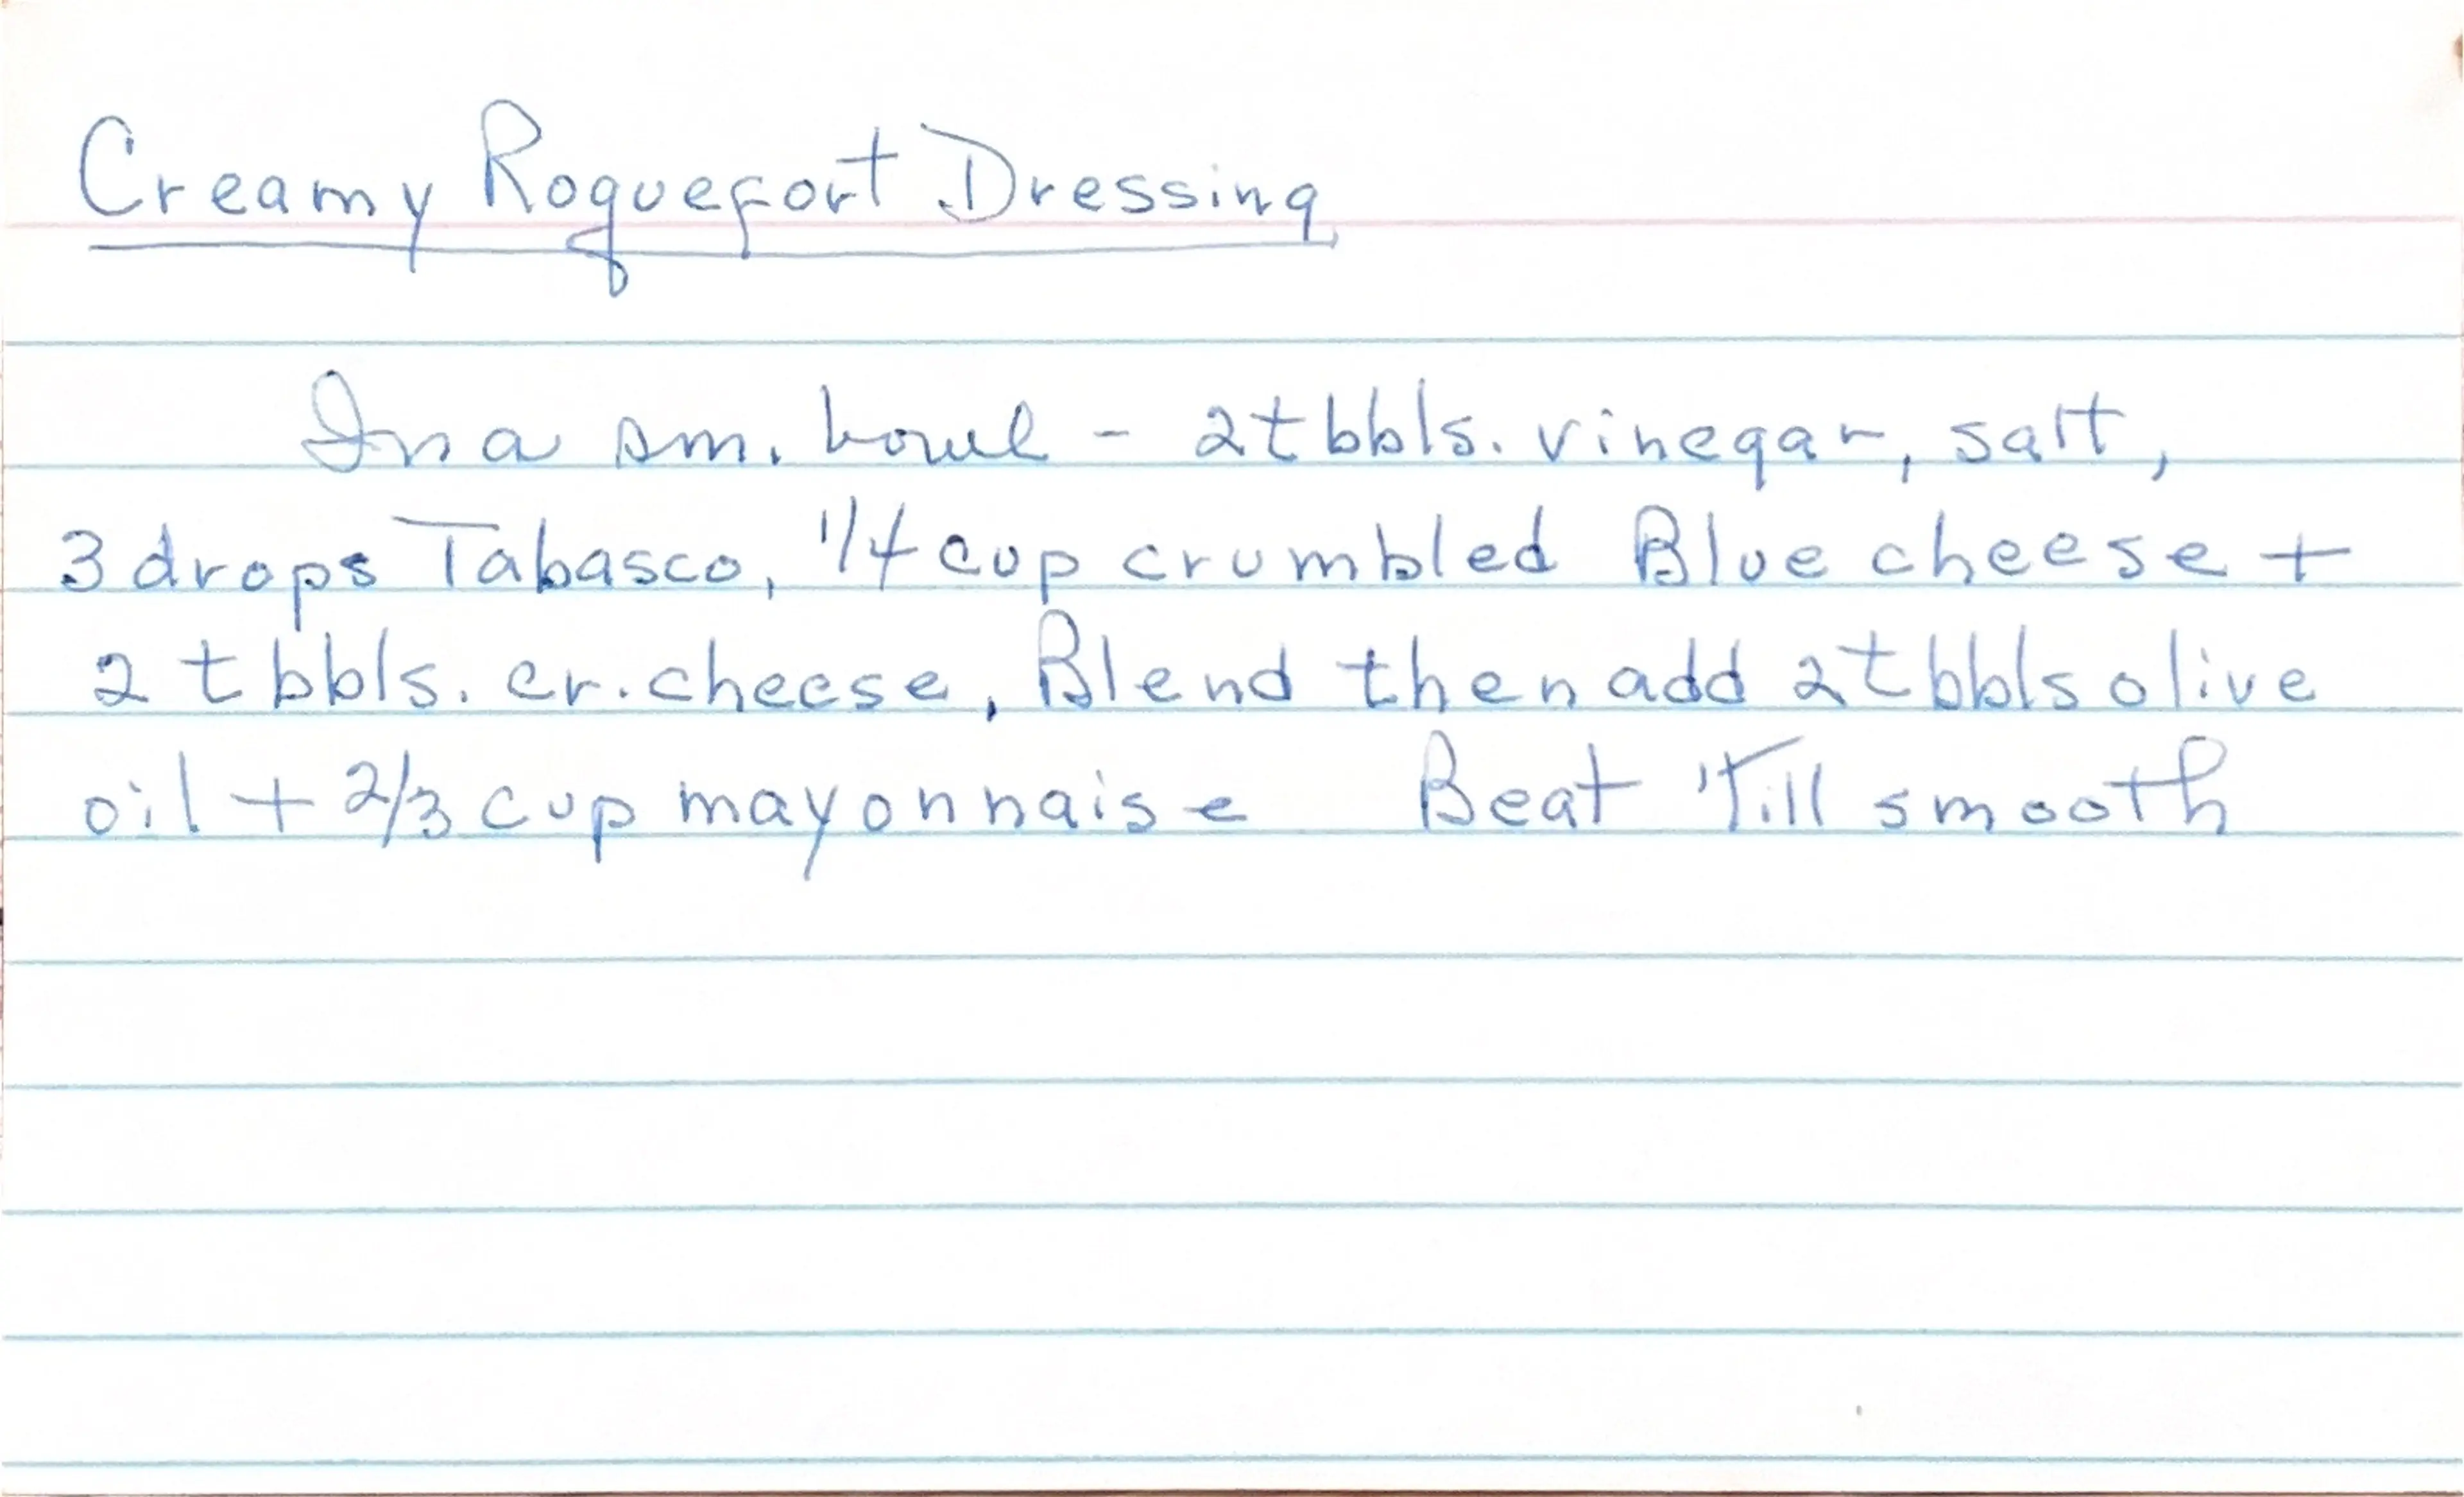 Creamy Roquefort Dressing
In a sm. bowl - 2 tbbls. vinegar, salt,
3 drops Tabasco, 1/4 cup crumbled Blue cheese +
2 tbbls. cr. cheese, Blend then add 2 tbbls olive
oil + 2/3 cup mayonnaise Beat 'till smooth